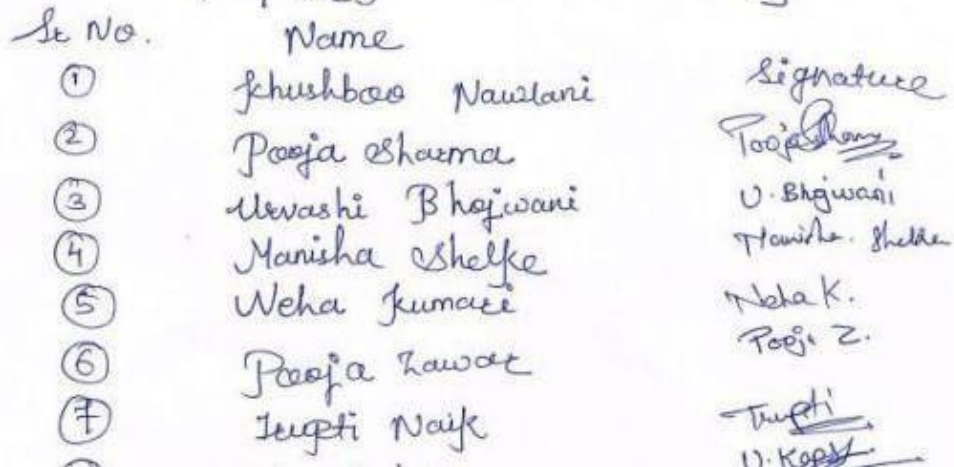 Sr No. Name
Signature
1 Khushboo Nawlani
2 Pooja Sharma Pooja Sharma
3 Urvashi Bhojwani U. Bhojwani
4 Manisha Shelke Manisha. Shelke
5 Neha Kumari Neha K.
6 Pooja Zawar Pooja Z.
7 Trupti Naik Trupti